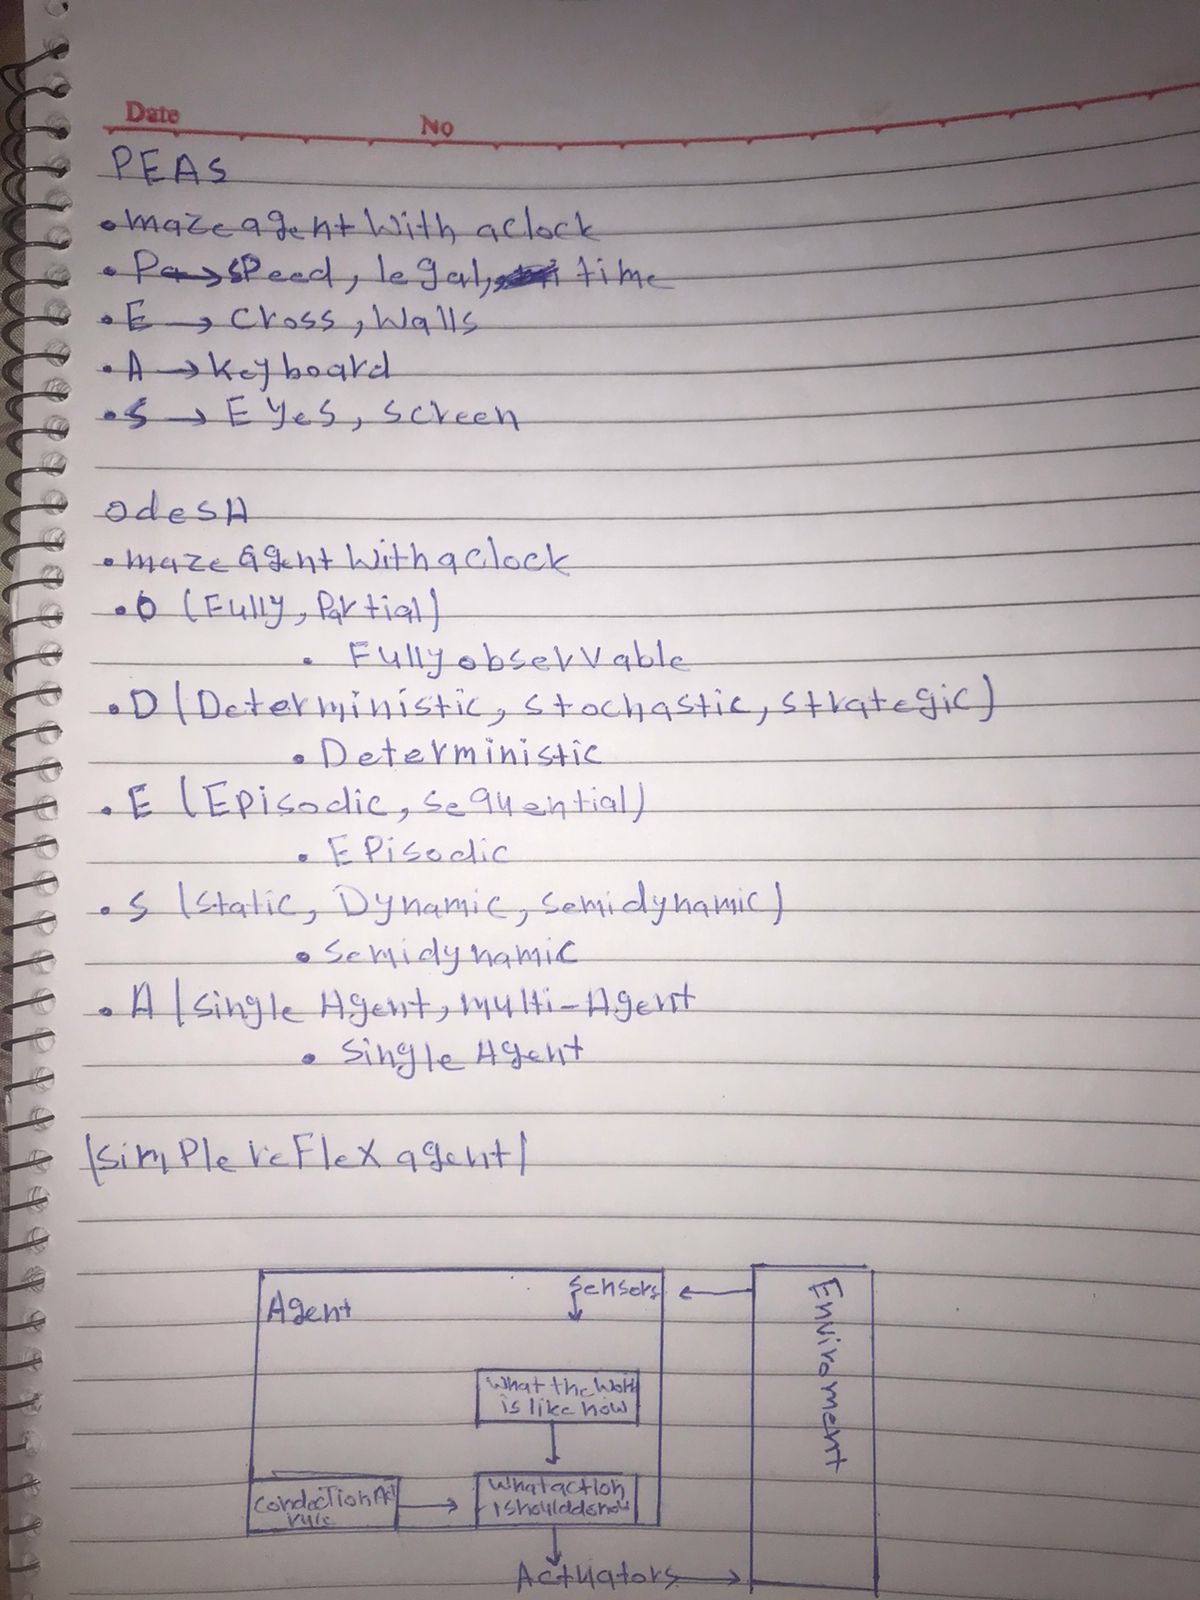 Date
No
PEAS
• maze agent with a clock
• Pa → speed, legal, time
• E → cross, walls
• A → keyboard
• S → Eyes, screen
odesA
• maze agent with a clock
• O (Fully, Partial)
• Fully observable
• D (Deterministic, stochastic, strategic)
• Deterministic
• E (Episodic, sequential)
• Episodic
• S (static, Dynamic, semidynamic)
• Semidynamic
• A (single Agent, multi-Agent
• single Agent
(simple reflex agent)
Agent
Sensors
Enviroment
what the world
is like now
CondectionAct
rule
what action
I should do now
Actuators